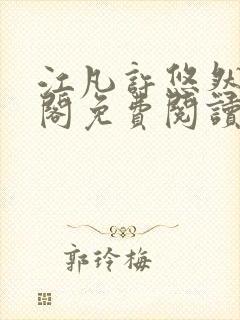 江凡許悠然
閣免費閱讀
郭玲梅